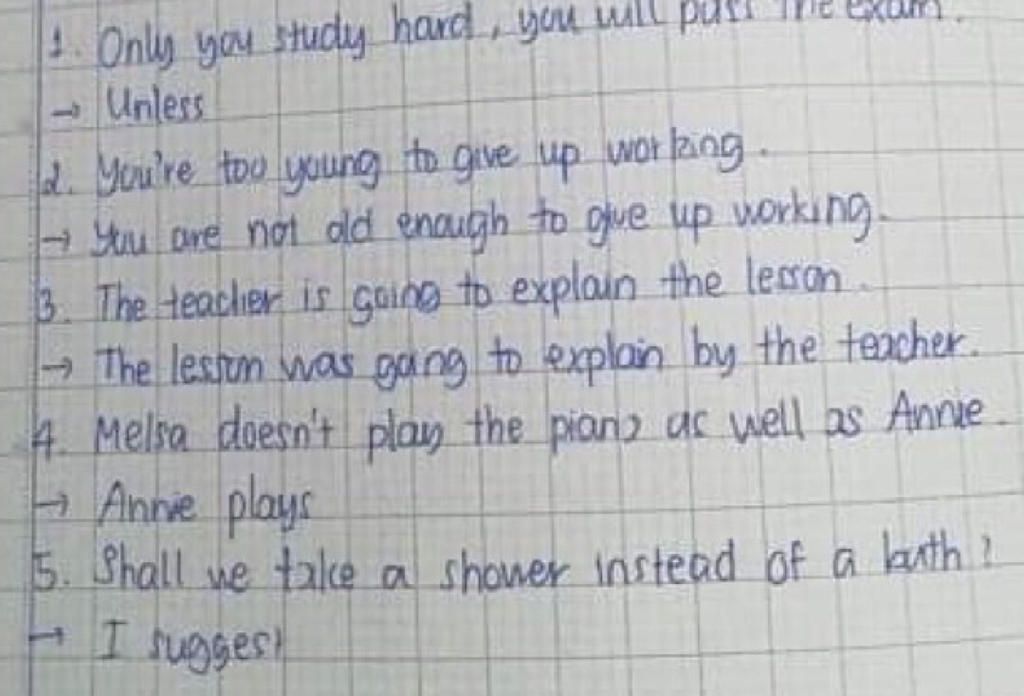 1. Only you study hard, you will pass the exam.
→ Unless
2. You're too young to give up working.
→ You are not old enough to give up working.
3. The teacher is going to explain the lesson.
→ The lesson was going to explain by the teacher.
4. Melsa doesn't play the piano as well as Annie.
→ Annie plays
5. Shall we take a shower instead of a bath?
→ I suggest